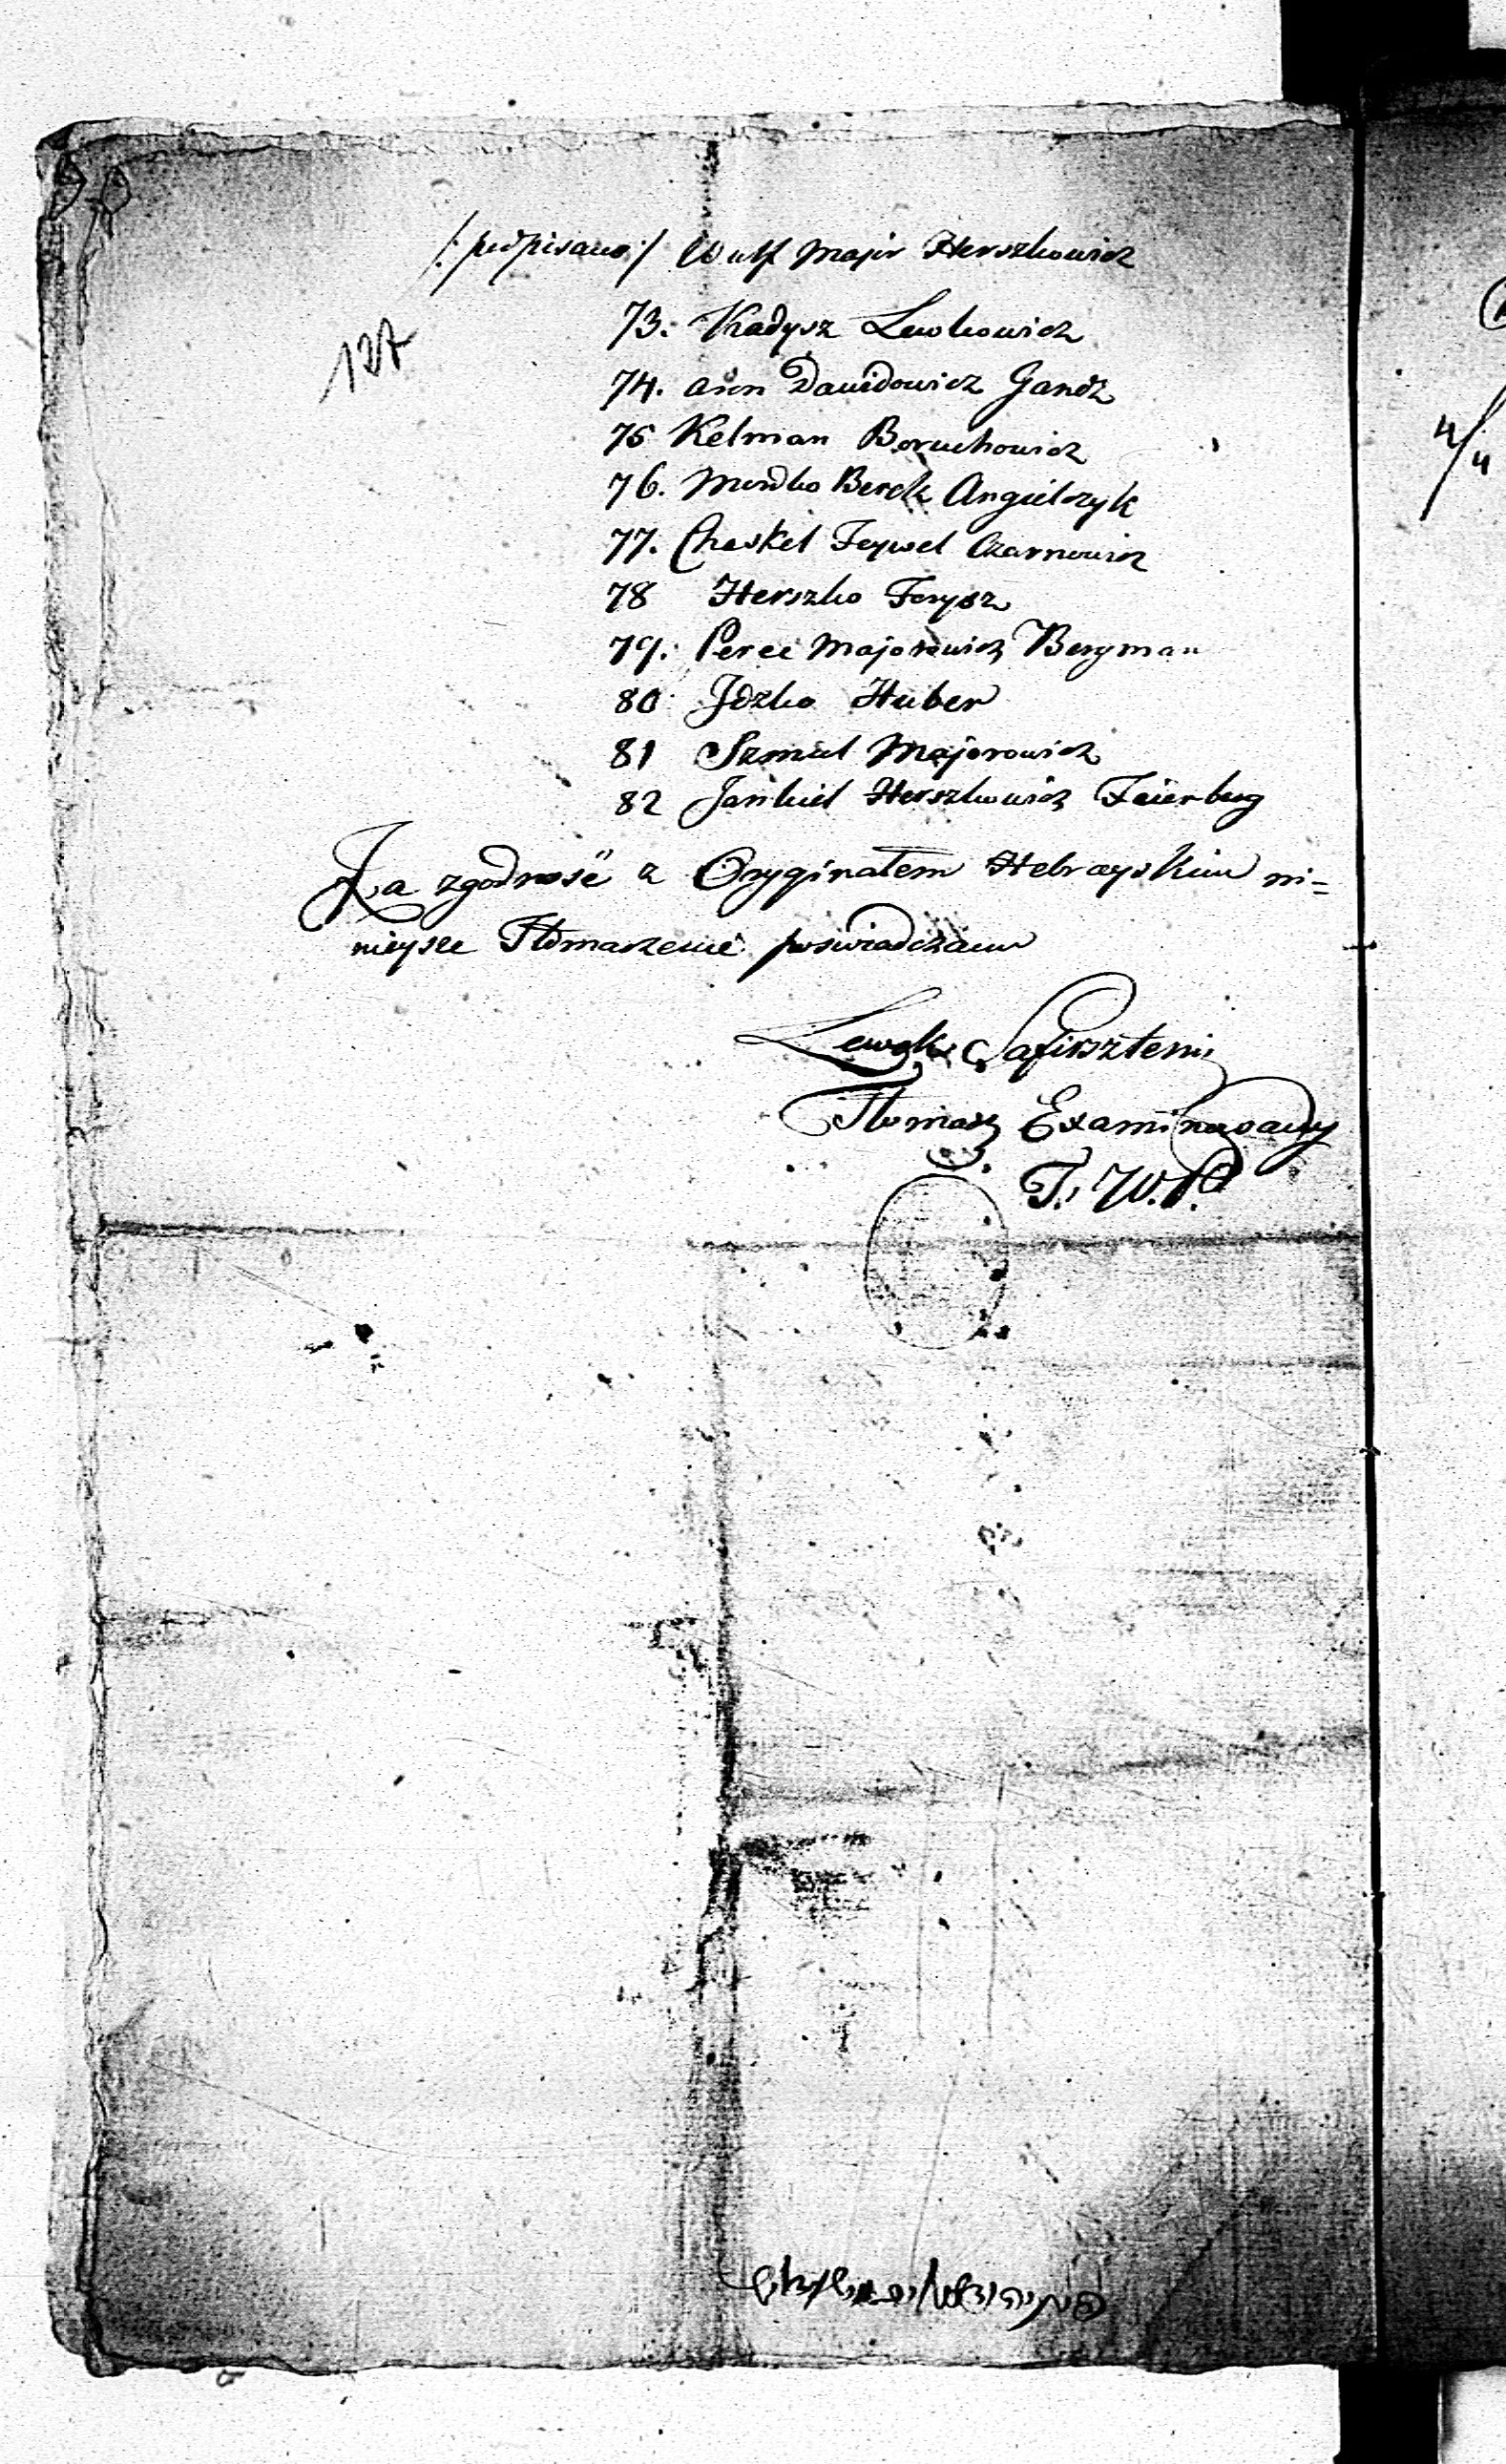 /: podpisano :/ Wulf Majer Herszkowicz
127
73. Kadysz Lewkowicz
74. Aron Dawidowicz Gandz
75 Kelman Boruchowicz
76. Moszko Berek Angielczyk
77. Chaskel Feywel Czarnowicz
78 Herszko Forysz
79. Perec Majorowicz Bergman
80 Idzko Huber
81 Szmul Majorowicz
82 Jankiel Herszkowicz Feierberg
Za zgodność z Oryginałem Hebrayskim ni=
nieysze Tłomaczenie poswiadczam
Lewek Szafirsztein
Tłomacz Examinowany
T. W. P.